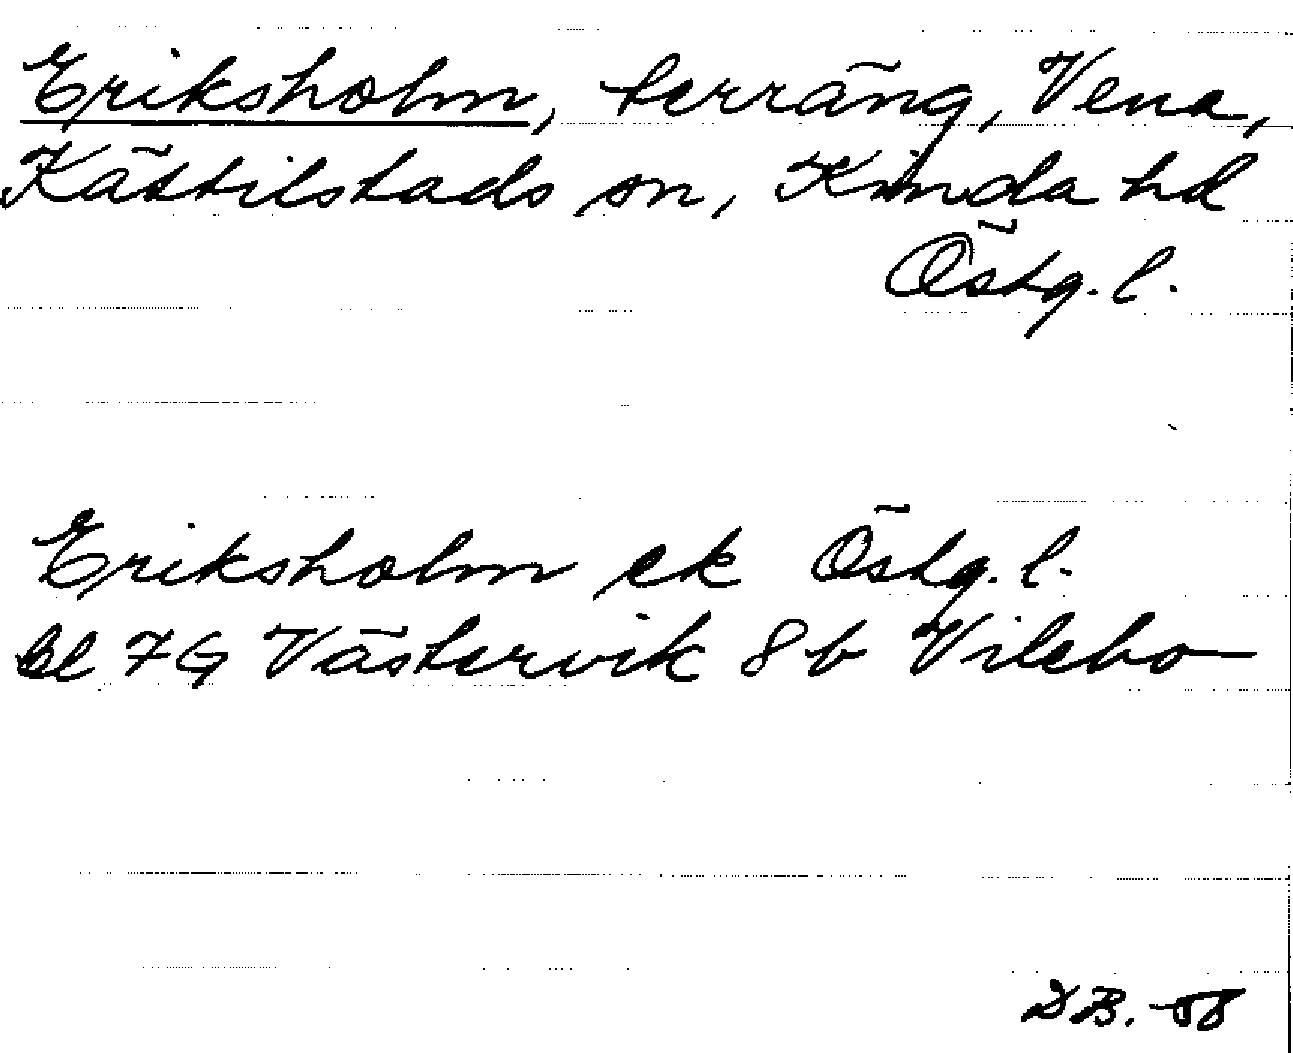 Eriksholm, terräng, Vena,
Kättilstads sn, Kinda hd
Östg. l.
Eriksholm ek Östg. l.
Bl 7G Västervik 8b Vilebo
DB. -58